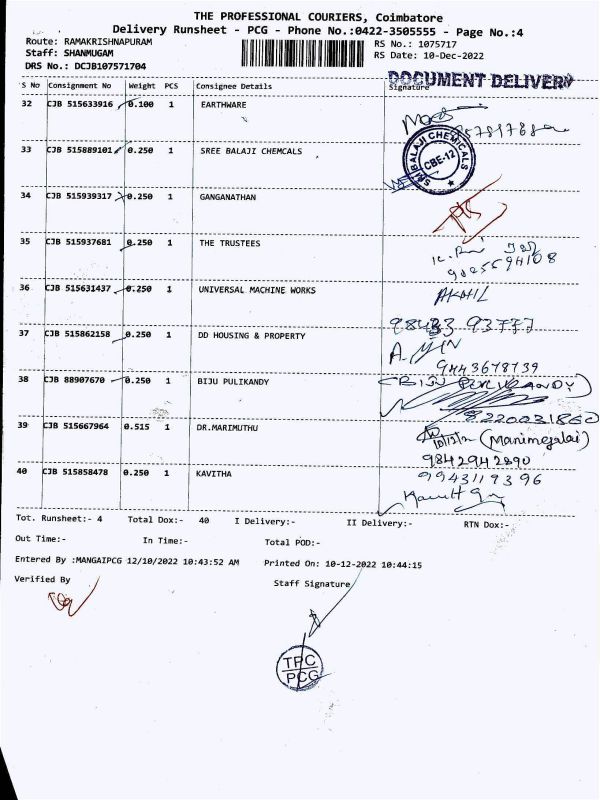 THE PROFESSIONAL COURIERS, Coimbatore
Delivery Runsheet - PCG - Phone No.:0422-3505555 - Page No.:4
Route: RAMAKRISHNAPURAM RS No.: 1075717
Staff: SHANMUGAM RS Date: 10-Dec-2022
DRS No.: DCJB107571704
DOCUMENT DELIVERY
S No Consignment No Weight PCS Consignee Details Signature
32 CJB 515633916 0.100 1 EARTHWARE
33 CJB 515889101 0.250 1 SREE BALAJI CHEMCALS
SRI BALAJI CHEMICALS CBE-12
34 CJB 515939317 0.250 1 GANGANATHAN
35 CJB 515937681 0.250 1 THE TRUSTEES
36 CJB 515631437 0.250 1 UNIVERSAL MACHINE WORKS AKHIL
98433 93777
37 CJB 515862158 0.250 1 DD HOUSING & PROPERTY
9443678739
38 CJB 88907670 0.250 1 BIJU PULIKANDY (BIJU PULIKANDY)
8220031860
39 CJB 515667964 0.515 1 DR.MARIMUTHU (Manimegalai)
9842942890
40 CJB 515858478 0.250 1 KAVITHA 9943119396
Tot. Runsheet:- 4 Total Dox:- 40 I Delivery:- II Delivery:- RTN Dox:-
Out Time:- In Time:- Total POD:-
Entered By :MANGAIPCG 12/10/2022 10:43:52 AM Printed On: 10-12-2022 10:44:15
Verified By Staff Signature
TPC
PCG